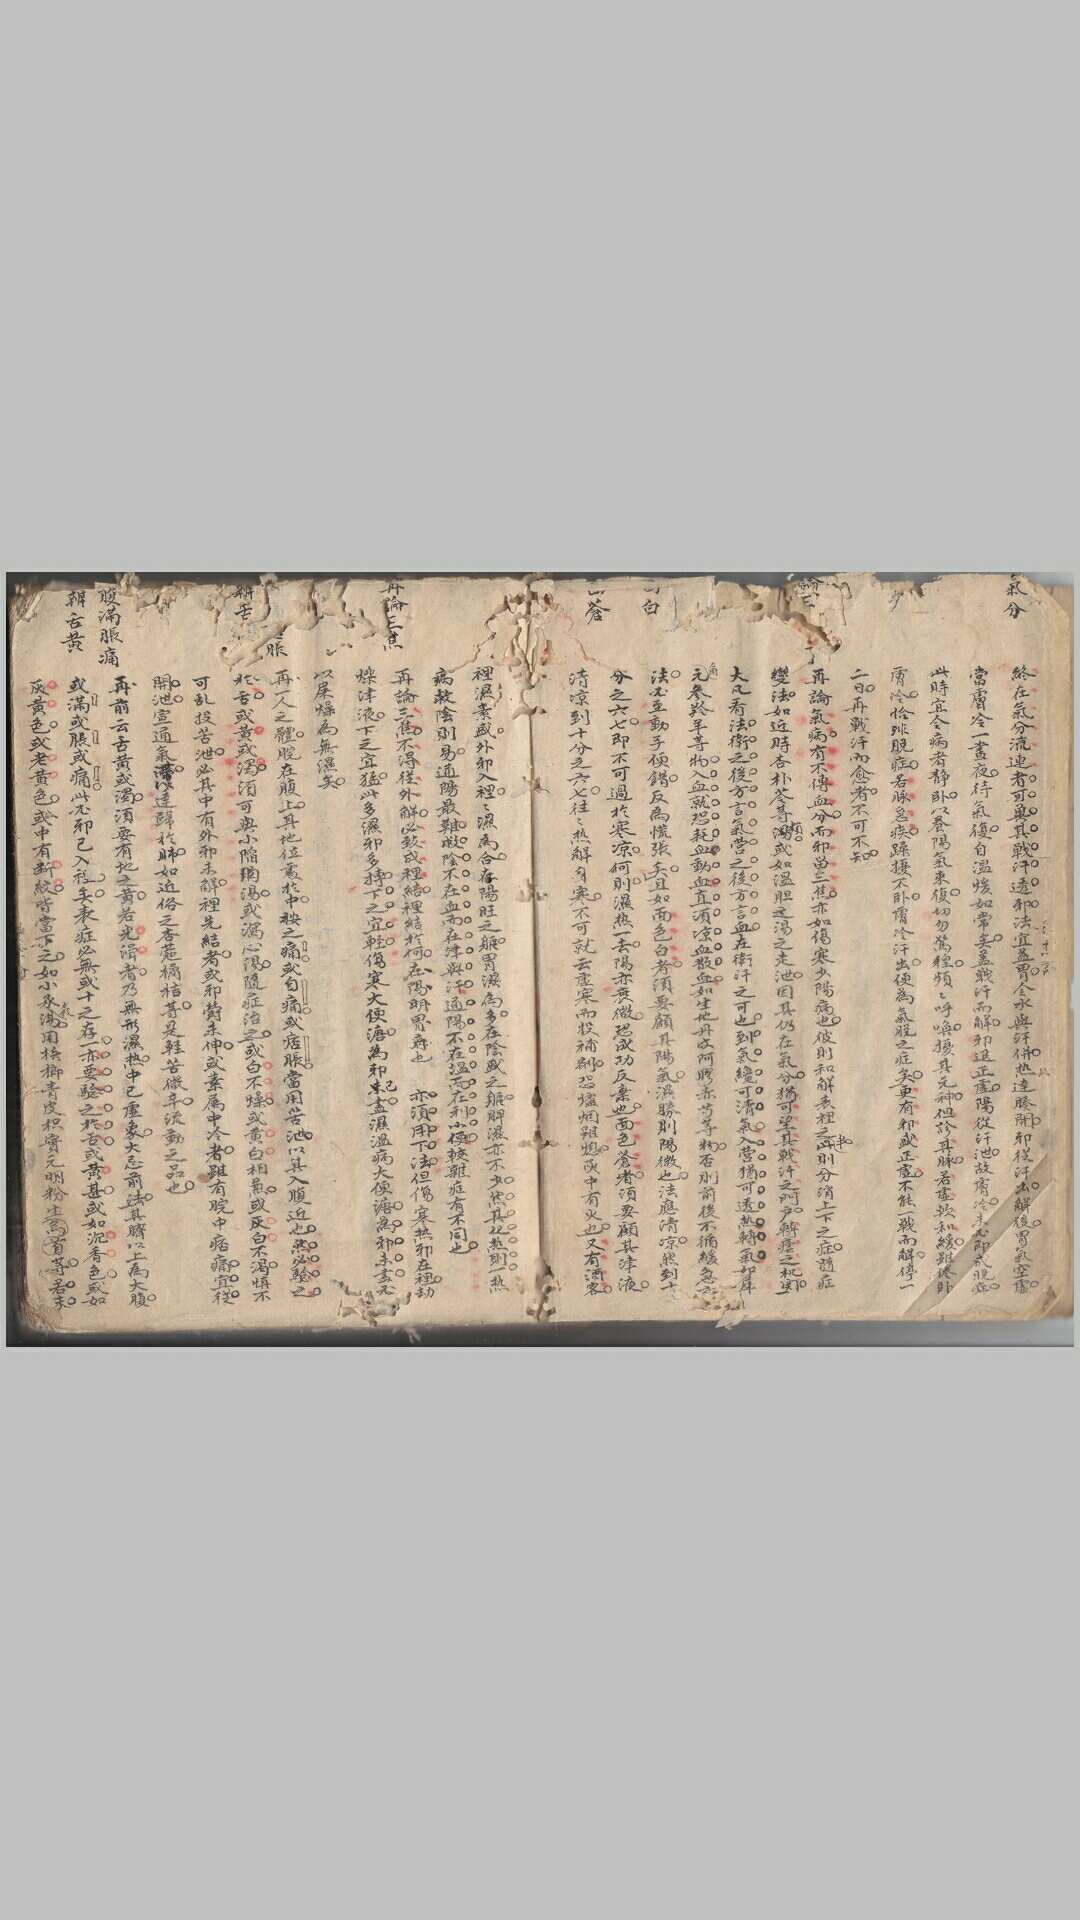 氣分
終在氣分流連者可冀其戰汗透邪法宜益胃令水與汗併热達腠開邪從汗出解後胃氣空虛
當膚冷一晝夜待氣復自溫煖如常矣盖戰汗而解邪退正虛陽從汗泄故膚冷未必即成脫症
此時宜令病者靜卧以養陽氣來復切勿驚惶頻々呼喚擾其元神但診其脉若虛軟和緩雖倦卧
膚冷恰非脫症若脉急疾躁擾不卧膚冷汗出便為氣脫之症矣更有邪盛正虛不能一戰而解停一
二日再戰汗而愈者不可不知
再論氣病有不傳血分而邪留三焦亦如傷寒少陽病也彼則和解表裡之半則分消上下之症隨症
變法如近時杏朴苓等類或如溫胆之湯之走泄因其仍在氣分猶可望其戰汗之門户轉瘧之机
大凡看法衛之後方言氣营之後方言血在衛汗之可也到氣纔可清氣入营猶可透熱轉氣如犀
元參羚羊等物入血就恐耗血動血直湏凉血散血如生地丹皮阿膠赤芍等物否則前後不循緩急之
角
白
法必至動手便錯反為慌張矣且如面色白者湏要顧其陽氣濕勝則陽微也法應清凉然到十
分之六七即不可過於寒凉何則濕热一去陽亦衰微恐成功反棄也面色蒼者湏要顧其津液
蒼
清凉到十分之六七往々热解身寒不可就云虛寒而投補劑恐爐烟雖熄灰中有火也又有酒客
裡濕素盛外邪入裡々濕為合在陽旺之軀胃濕為多在陰盛之軀脾濕亦不少然其化热則一热
病救陰則易通陽最難救陰不在血而在津與汗通陽不在溫而在利小便較雜症有不同也
再論三焦
再論三焦不得從外解必致成裡結裡結於何在陽明胃府也 亦湏用下法但傷寒热邪在裡劫
爍津液下之宜猛此多濕邪多摶下之宜軽傷寒大便溏為邪未盡濕溫病大便溏為邪未盡
以屎燥為無濕矣
再人之體脘在腹上其地位處於中按之痛或自痛或痞脹當用苦泄以其入腹近也然必驗之
於舌或黄或濁湏可與小陷胸湯或瀉心湯隨症治之或白不燥或黄白相兼或灰白不渴慎不
可乱投苦泄必其中有外邪未解裡先結者或邪欝未伸或素属中冷者雖有脘中痞痛宜從
開泄宣通氣滯以達歸於肺如近俗之杏蔻橘桔等是軽苦微辛流動之品也
再前云舌黄或濁湏要有地之黄若光滑者乃無形濕热中已虛象大忌前法其臍以上為大腹
腹滿脹痛
或滿或脹或痛此必邪已入裡矣表症必無或十之存一亦要驗之於舌或黄甚或如沉香色或如
辨舌黄
灰黄色或老黄色或中有断紋皆當下之如小承湯用梹榔青皮枳實元明粉生首等若未